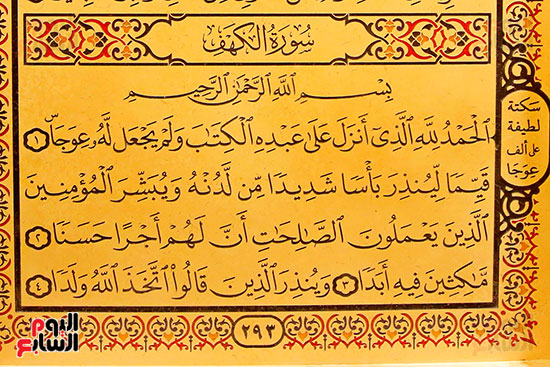 سُورَةُ الكَهْفِ
بِسْمِ ٱللَّهِ ٱلرَّحْمَٰنِ ٱلرَّحِيمِ
ٱلْحَمْدُ لِلَّهِ ٱلَّذِىٓ أَنزَلَ عَلَىٰ عَبْدِهِ ٱلْكِتَٰبَ وَلَمْ يَجْعَل لَّهُۥ عِوَجَاۜ ١
قَيِّمًا لِّيُنذِرَ بَأْسًا شَدِيدًا مِّن لَّدُنْهُ وَيُبَشِّرَ ٱلْمُؤْمِنِينَ
ٱلَّذِينَ يَعْمَلُونَ ٱلصَّٰلِحَٰتِ أَنَّ لَهُمْ أَجْرًا حَسَنًا ٢
مَّٰكِثِينَ فِيهِ أَبَدًا ٣ وَيُنذِرَ ٱلَّذِينَ قَالُوا۟ ٱتَّخَذَ ٱللَّهُ وَلَدًا ٤
سكتة
لطيفة
على ألف
عوجا
٢٩٣
اليوم
السابع